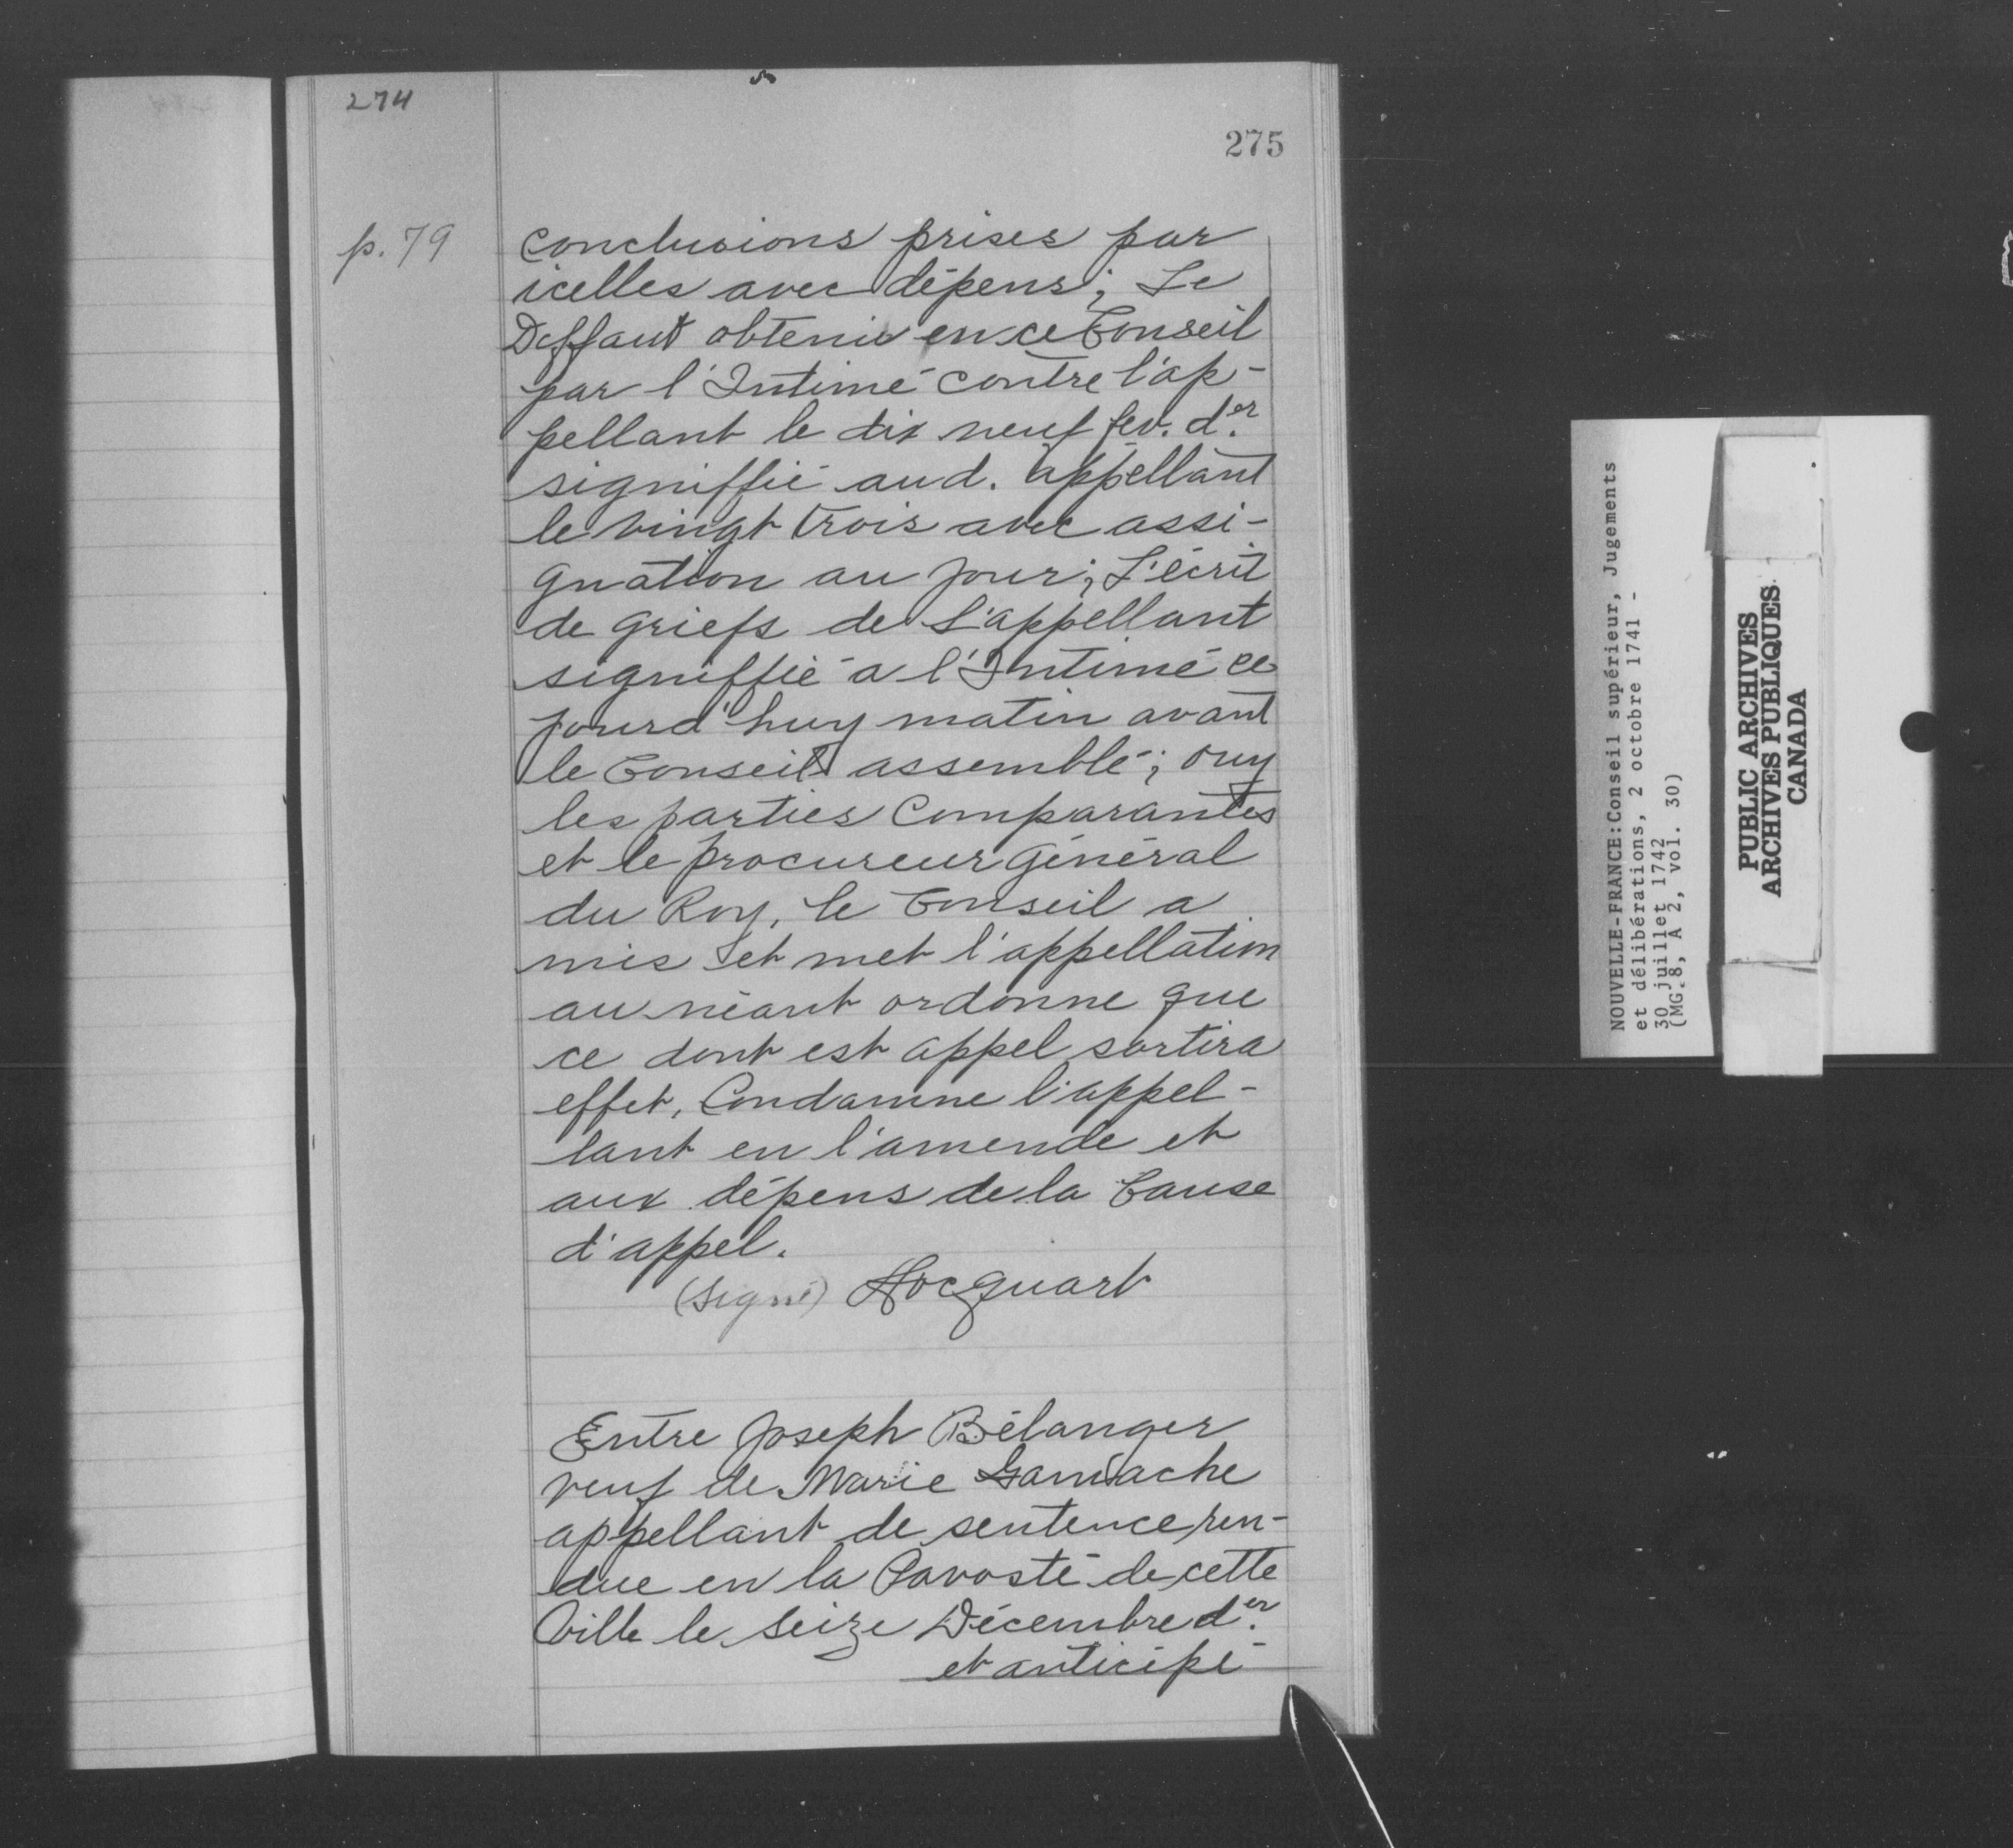 274
275
p. 79
Conclusions prises par
icelles avec dépens; Le
Deffaut obtenu en ce Conseil
par l'Intimé contre l'ap-
pellant le dix neuf fev. der
signiffié aud. appellant
le vingt trois avec assi-
gnation au jour; L'écrit
de griefs de L'appellant
signiffié à l'Intimé ce
jourd'huy matin avant
le Conseil assemblé; ouy
les parties comparantes
et le procureur général
du Roy, le Conseil a
mis et met l'appellation
au néant ordonne que
ce dont est appel sortira
effet, Condamne l'appel-
lant en l'amende et
aux dépens de la Cause
d'appel.
(signé) Hocquart
Entre Joseph Bélanger
veuf de Marie Gamache
appellant de sentence ren-
due en la Pavosté de cette
Ville le seize Décembre der
et anticipé
NOUVELLE-FRANCE:Conseil supérieur, Jugements
et délibérations, 2 octobre 1741 -
30 juillet 1742
(MG.8, A 2, vol. 30)
PUBLIC ARCHIVES
ARCHIVES PUBLIQUES
CANADA